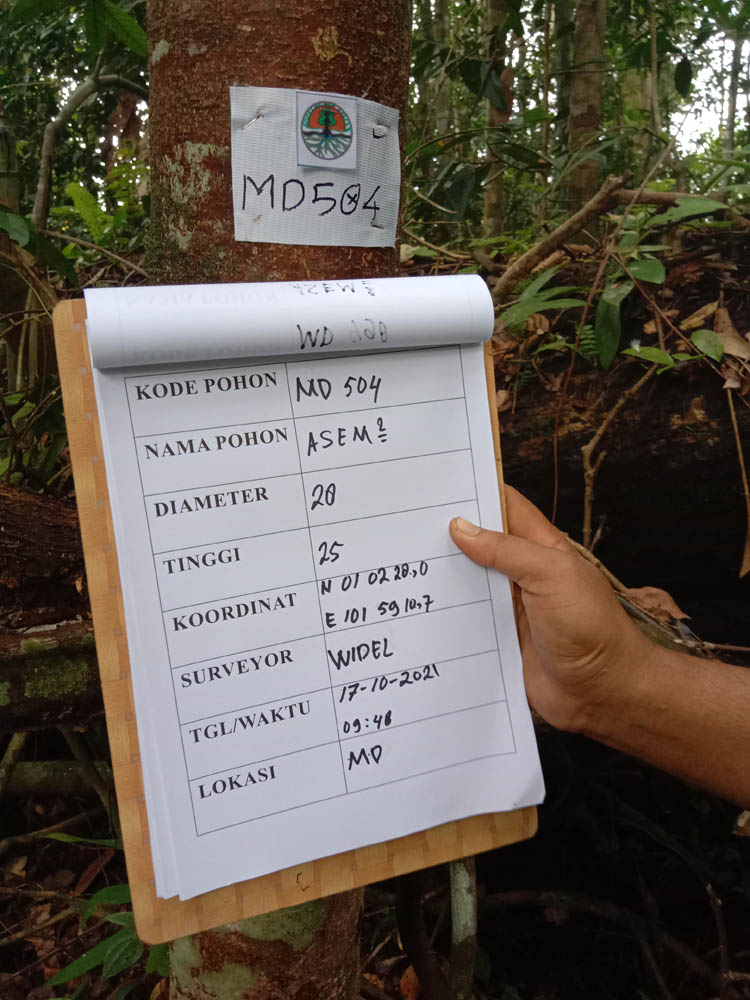 MD504
KODE POHON MD 504
NAMA POHON ASEM 2
DIAMETER 20
TINGGI 25
KOORDINAT N 01 02 28,0
E 101 59 10,7
SURVEYOR WIDEL
TGL/WAKTU 17-10-2021
09:48
LOKASI MD